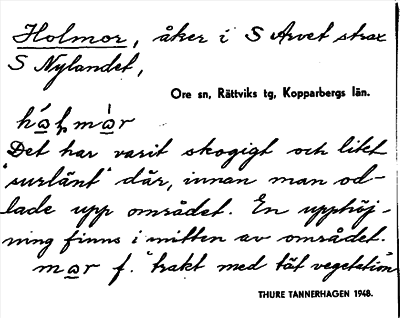 Holmor, åker i S Arvet strax
S Nylandet,
Ore sn, Rättviks tg, Kopparbergs län.
Det har varit skogigt och litet
"surlänt" där, innan man od-
lade upp området. En upphöj-
ning finns i mitten av området.
mor f. "trakt med tät vegetation
THURE TANNERHAGEN 1948.